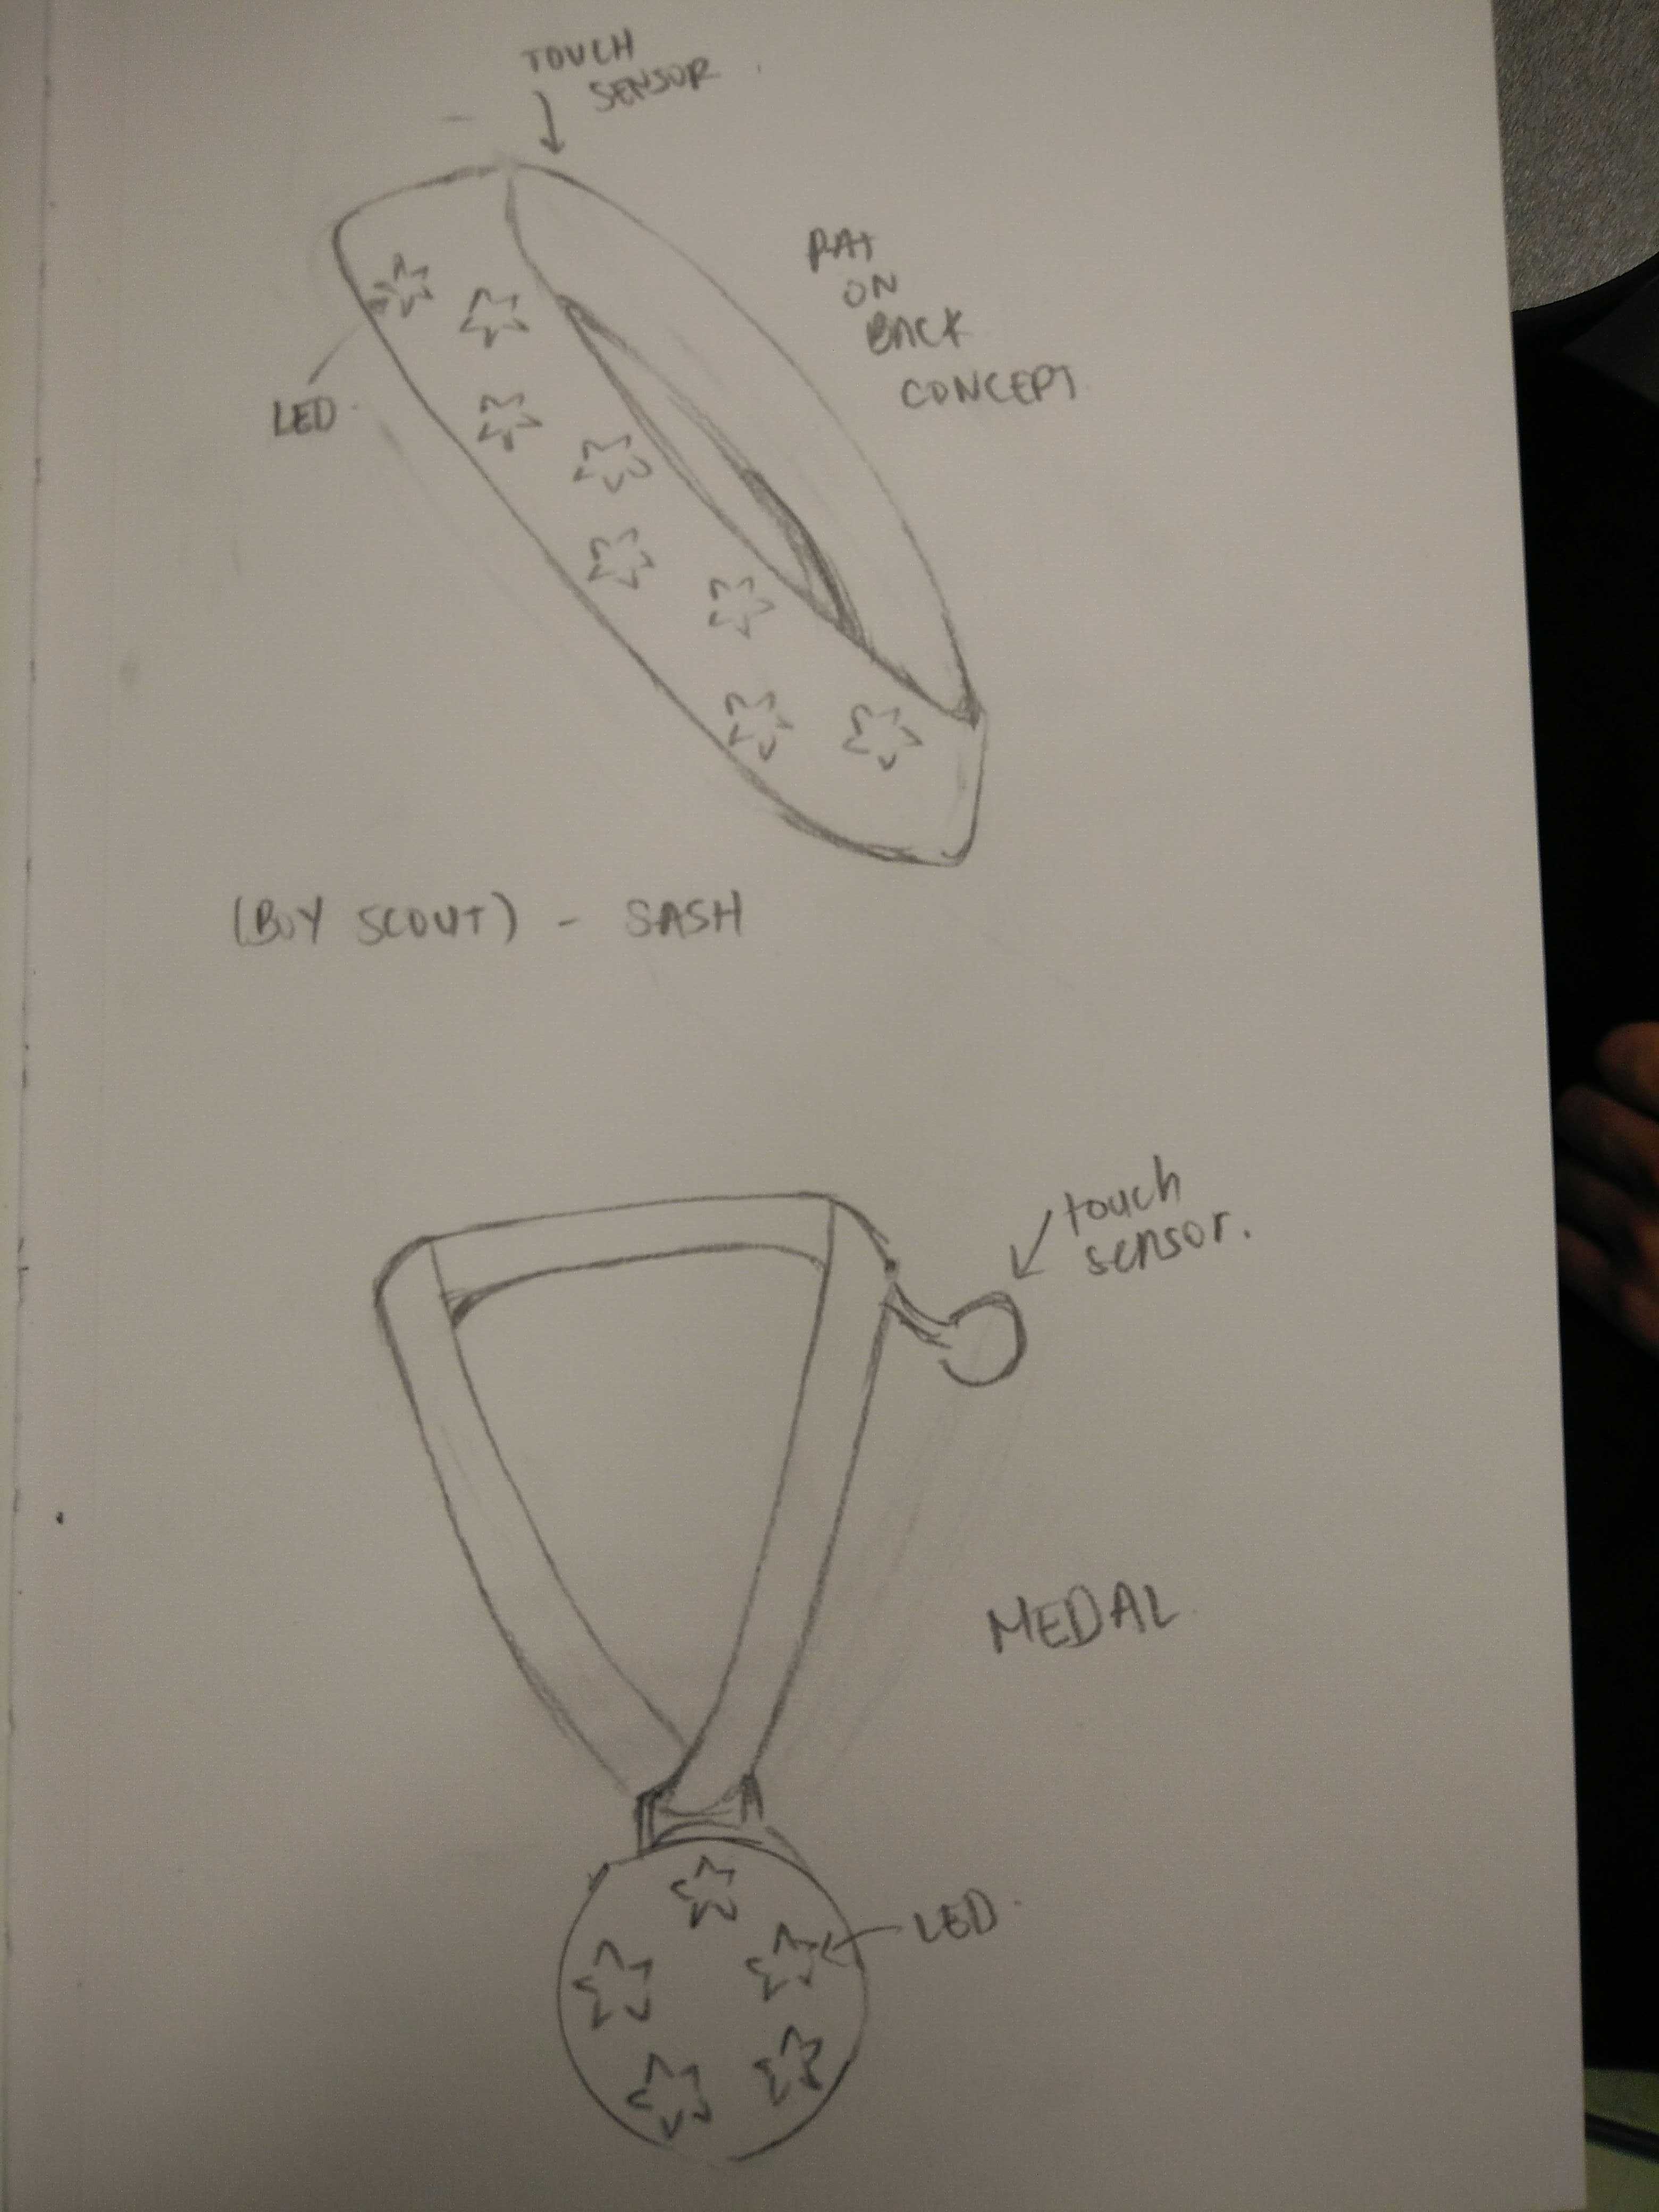 TOUCH
SENSOR
PAT
ON
BACK
CONCEPT
LED
(BOY SCOUT) - SASH
touch
sensor.
MEDAL
LED